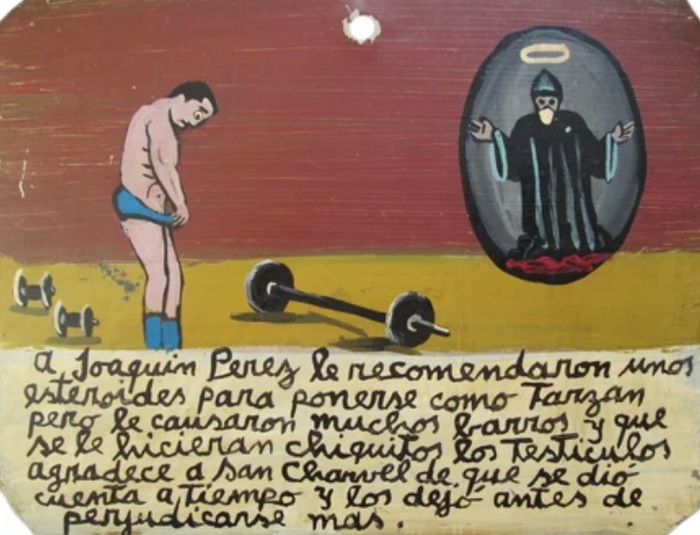 a Joaquin Perez le recomendaron unos
esteroides para ponerse como Tarzan
pero le causaron muchos barros y que
se le hicieran chiquitos los testiculos
agradece a San Charvel de que se dió
cuenta a tiempo y los dejó antes de
perjudicarse mas.